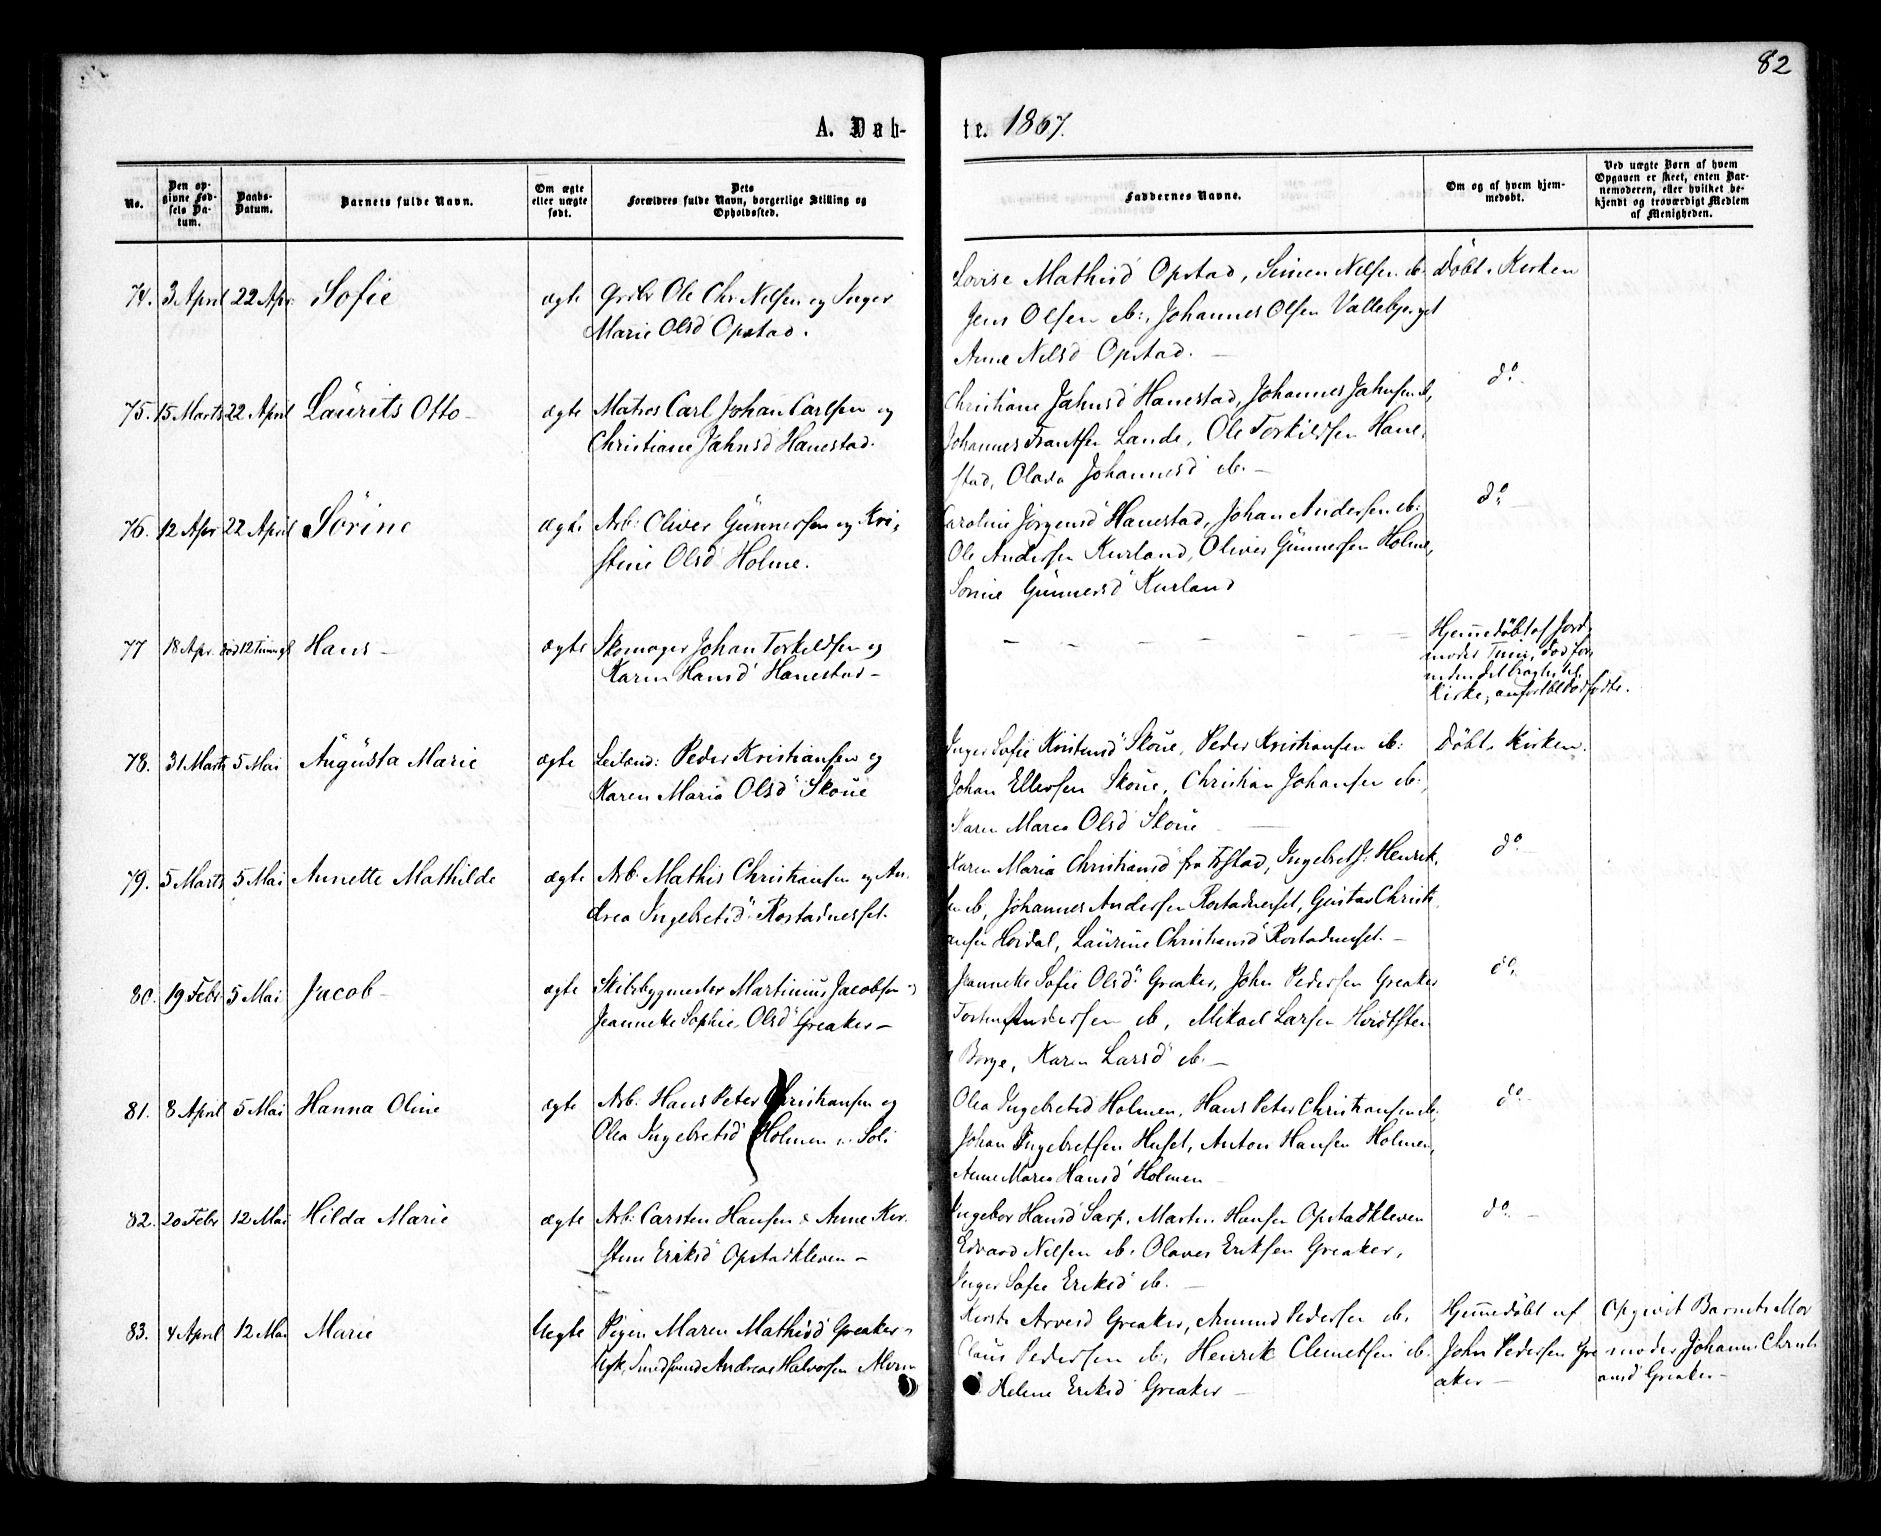 82
A. Døb-
te. 1867.
No.
Den op-
givne Fød-
sels Da-
tum.
Daabs-
Datum.
Barnets fulde Navn.
Om ægte
eller uægte
født.
Dets
Forældres fulde Navn, borgerlige Stilling og
Opholdssted.
Faddernes Navne.
Om og af hvem hjem-
medøbt.
Ved uægte Børn af hvem
Opgaven er skeet, enten Bar-
nemoderen, eller hvilket be-
kjendt og troværdigt Medlem
af Menigheden.
74. 3 April 22 Apr. Sofie ægte Grdbr Ole Chr. Nilsen og Inger
Marie Olsd Opstad.
Lovise Mathisd Opstad, Simen Nilsen ib.
Jens Olsen ib:, Johannes Olsen Vallebyeget
Anne Nilsd Opstad. —
Døbt i Kirken
75. 15 Marts 22 April Laurits Otto — ægte Matros Carl Johan Carlsen og
Christiane Jahnsd Hanestad.
Christiane Jahnsd Hanestad, Johannes Jahnsen ib,
Johannes Frantsen Lande, Ole Torkildsen Hane-
stad, Olava Johannesd ib. —
do. —
76. 12 Apr 22 April Sørine ægte Arb: Oliver Gunnersen og Kri-
stine Olsd Holme.
Caroline Jørgensd Hanestad, Johan Andersen ib:
Ole Andersen Kurland, Oliver Gunnersen Holme,
Sørine Gunnersd Kurland
do. —
77 18 Apr. død 12 Hans — ægte Skomager Johan Torkildsen og
Karen Hansd Hanestad —
— — — — — —
Hjemmedøbt af Jord-
moder Tune, død for-
inden det bragtes til
Kirke, anført bl. Dødfødte.
78. 31 Marts 5 Mai Augusta Marie ægte Leiland: Peder Kristiansen og
Karen Maria Olsd Skoue
Inger Sofie Kristensd Skoue, Peder Kristiansen ib:
Johan Ellersen Skoue, Christian Johansen ib:,
Karen Maria Olsd Skoue —
Døbt i Kirken.
79. 5 Marts 5 Mai Annette Mathilde ægte Arb: Mathis Christiansen og An-
drea Ingebretsd Rostadneset.
Karen Maria Christiansd fra Tystad, Ingebret J: Henrik-
sen ib, Johannes Andersen Rostadneset, Gustav Christi-
ansen Hordal, Laurine Christiansd Rostadneset. —
do. —
80. 19 Febr 5 Mai Jacob — ægte Skibsbygmester Martinius Jacobsen og
Jeannette Sophie Olsd Greaker —
Jeannette Sofie Olsd Greaker, John Pedersen Greaker
Torsten Andersen ib, Mikael Larsen Hvidtsten
Borge, Karen Larsd ib. —
do.
81. 8 April 5 Mai Hanna Oline ægte Arb: Hans Peter Christiansen og
Olea Ingebretsd Holmen u. Soli
Olea Ingebretsd Holmen, Hans Peter Christiansen ib,
Johan Ingebretsen Huset, Anton Hansen Holmen,
Anne Marea Hansd Holmen —
do. —
82. 20 Febr 12 Mai Hilda Marie ægte Arb: Carsten Hansen & Anne Ker-
stine Eriksd Opstadkleven —
Ingebor Hansd Sarp, Martin Hansen Opstadkleven
Edvard Nilsen ib, Olaves Eriksen Greaker,
Inger Sofie Eriksd ib. —
do. —
83. 4 April 12 Mai Marie Uegte Pigen Maren Mathisd Greaker —
Ugk, Andreas Halvorsen
Kersti Arvesd Greaker, Amund Pedersen ib,
Claus Pedersen ib, Henrik Clemetsen ib.
Helene Eriksd Greaker —
Hjemmedøbt af
John Pedersen Gre
aker —
Opgivet Barnets Mor
moder Johanne Christi
ansd Greaker —